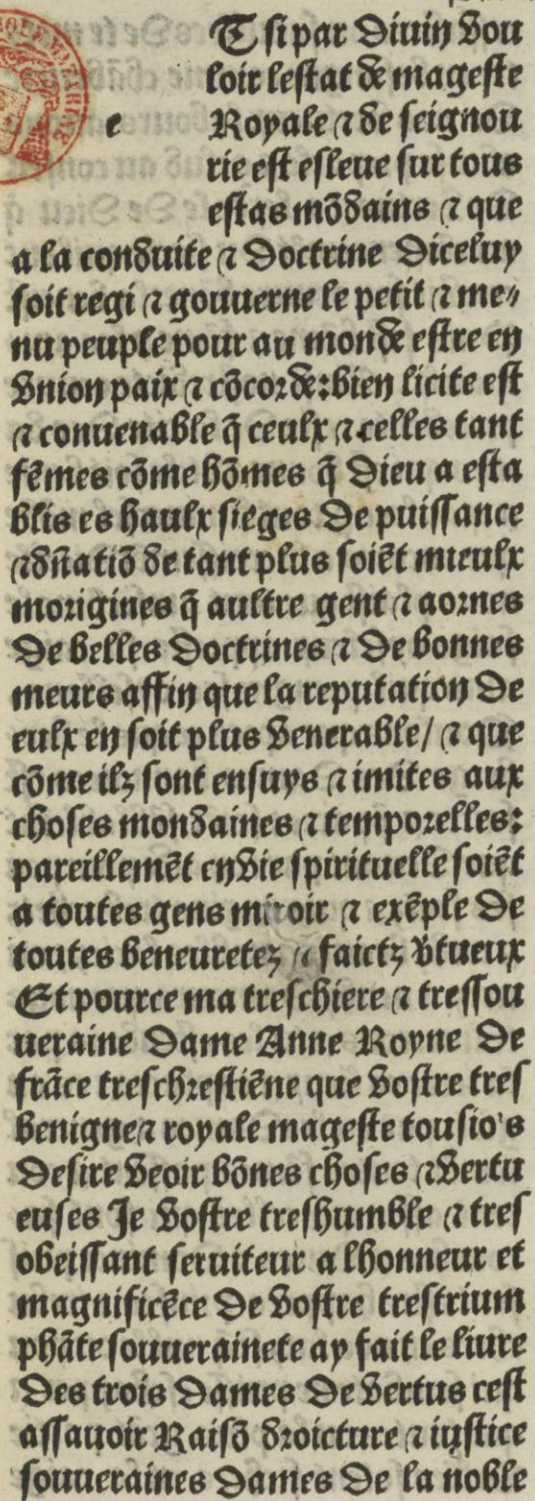 e T si par diuin vou
loir lestat de mageste
Royale ⁊ de seignou
rie est esleue sur tous
estas mõdains ⁊ que
a la conduite ⁊ doctrine diceluy
soit regi ⁊ gouuerne le petit ⁊ me⸗
nu peuple pour au monde estre en
vnion paix ⁊ cõcorde: bien licite est
⁊ conuenable q̃ ceulx ⁊ celles tant
fẽmes cõme hõmes q̃ dieu a esta
blis es haulx sieges de puissance
⁊ dñatiõ de tant plus soiẽt mieulx
morigines q̃ aultre gent ⁊ aornes
de belles doctrines ⁊ de bonnes
meurs affin que la reputation de
eulx en soit plus venerable/ ⁊ que
cõme ilz sont ensuys ⁊ imites aux
choses mondaines ⁊ temporelles:
pareillemẽt en vie spirituelle soiẽt
a toutes gens miroir ⁊ exẽple de
toutes beneuretez ⁊ faictz v̾tueux
Et pource ma treschiere ⁊ tressou
ueraine dame Anne Royne de
frãce treschrestiẽne que vostre tres
benigne ⁊ royale mageste tousio's
desire veoir bõnes choses ⁊ vertu
euses Je vostre treshumble ⁊ tres
obeissant seruiteur a lhonneur et
magnificẽce de vostre trestrium
phãte souuerainete ay fait le liure
des trois dames de vertus cest
assauoir Raisõ droicture ⁊ iustice
souueraines dames de la noble